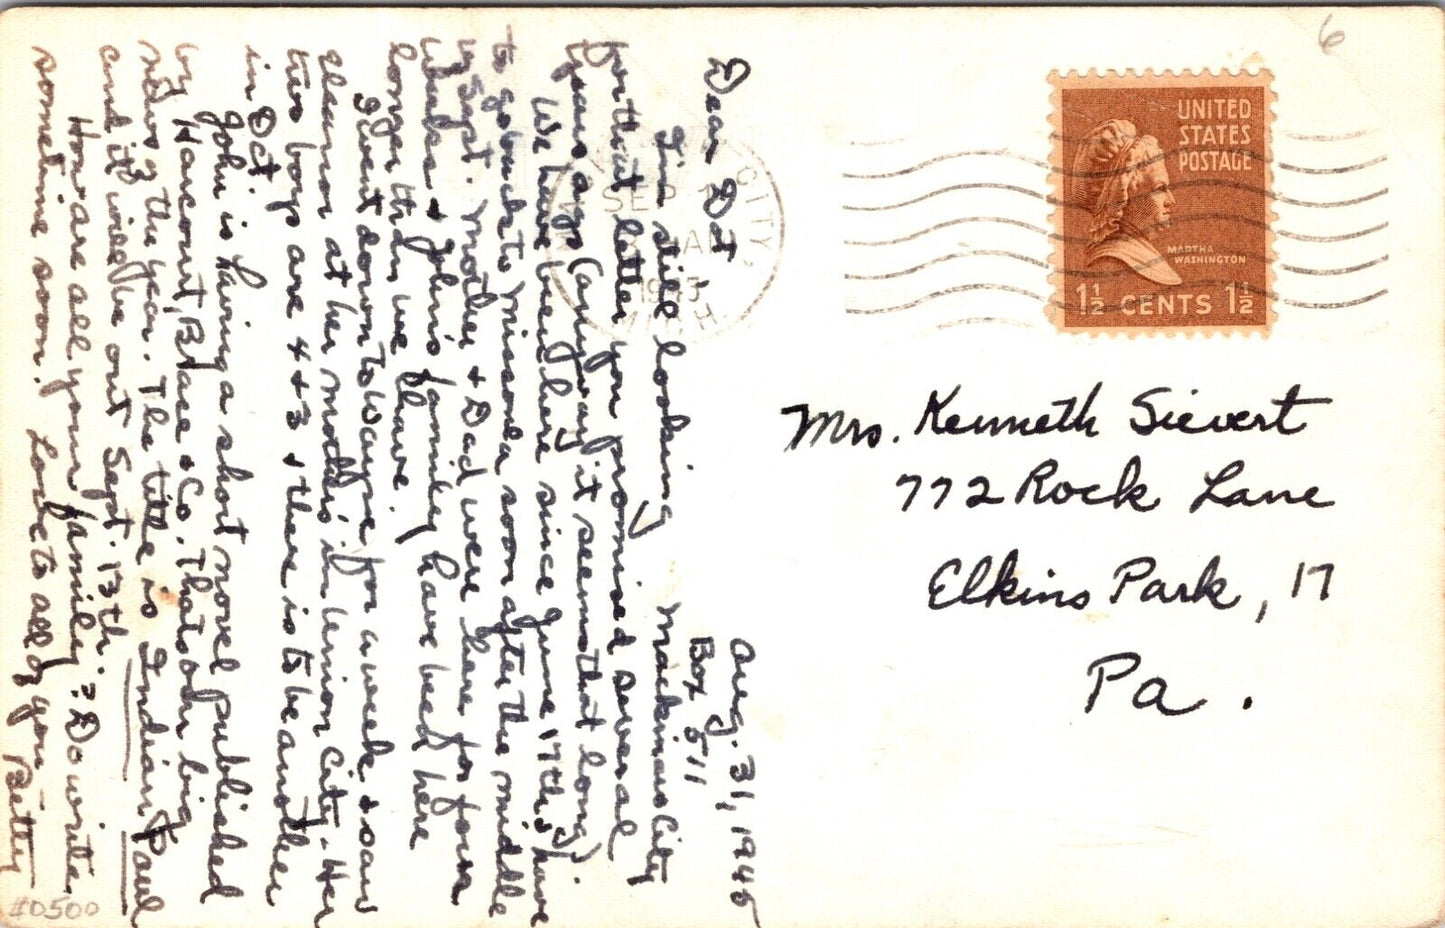 Aug. 31, 1945
Box 511
Mackinaw City
Dear Dot
I'm still looking
for that letter you promised several
years ago (anyway it seems that long).
We have been here since June 17th, & have
to go back to Missoula soon after the middle
of Sept. Mother & Dad were here for four
weeks & John's family have been here
longer than we have.
I went down to Wayne for a week & saw
Eleanor at her mother's in Union City. Her
two boys are 4 & 3 & there is to be another
in Oct.
John is having a short novel published
by Harcourt, Brace & Co. That's our big
news of the year. The title is Indian Paul
and it will be out Sept. 13th.
How are all your family? Do write
sometime soon. Love to all of you
Betty
#0500
6
CITY,
SEP 1
1945
MICH
UNITED
STATES
POSTAGE
MARTHA
WASHINGTON
1½ CENTS 1½
Mrs. Kenneth Sievert
772 Rock Lane
Elkins Park, 17
Pa.